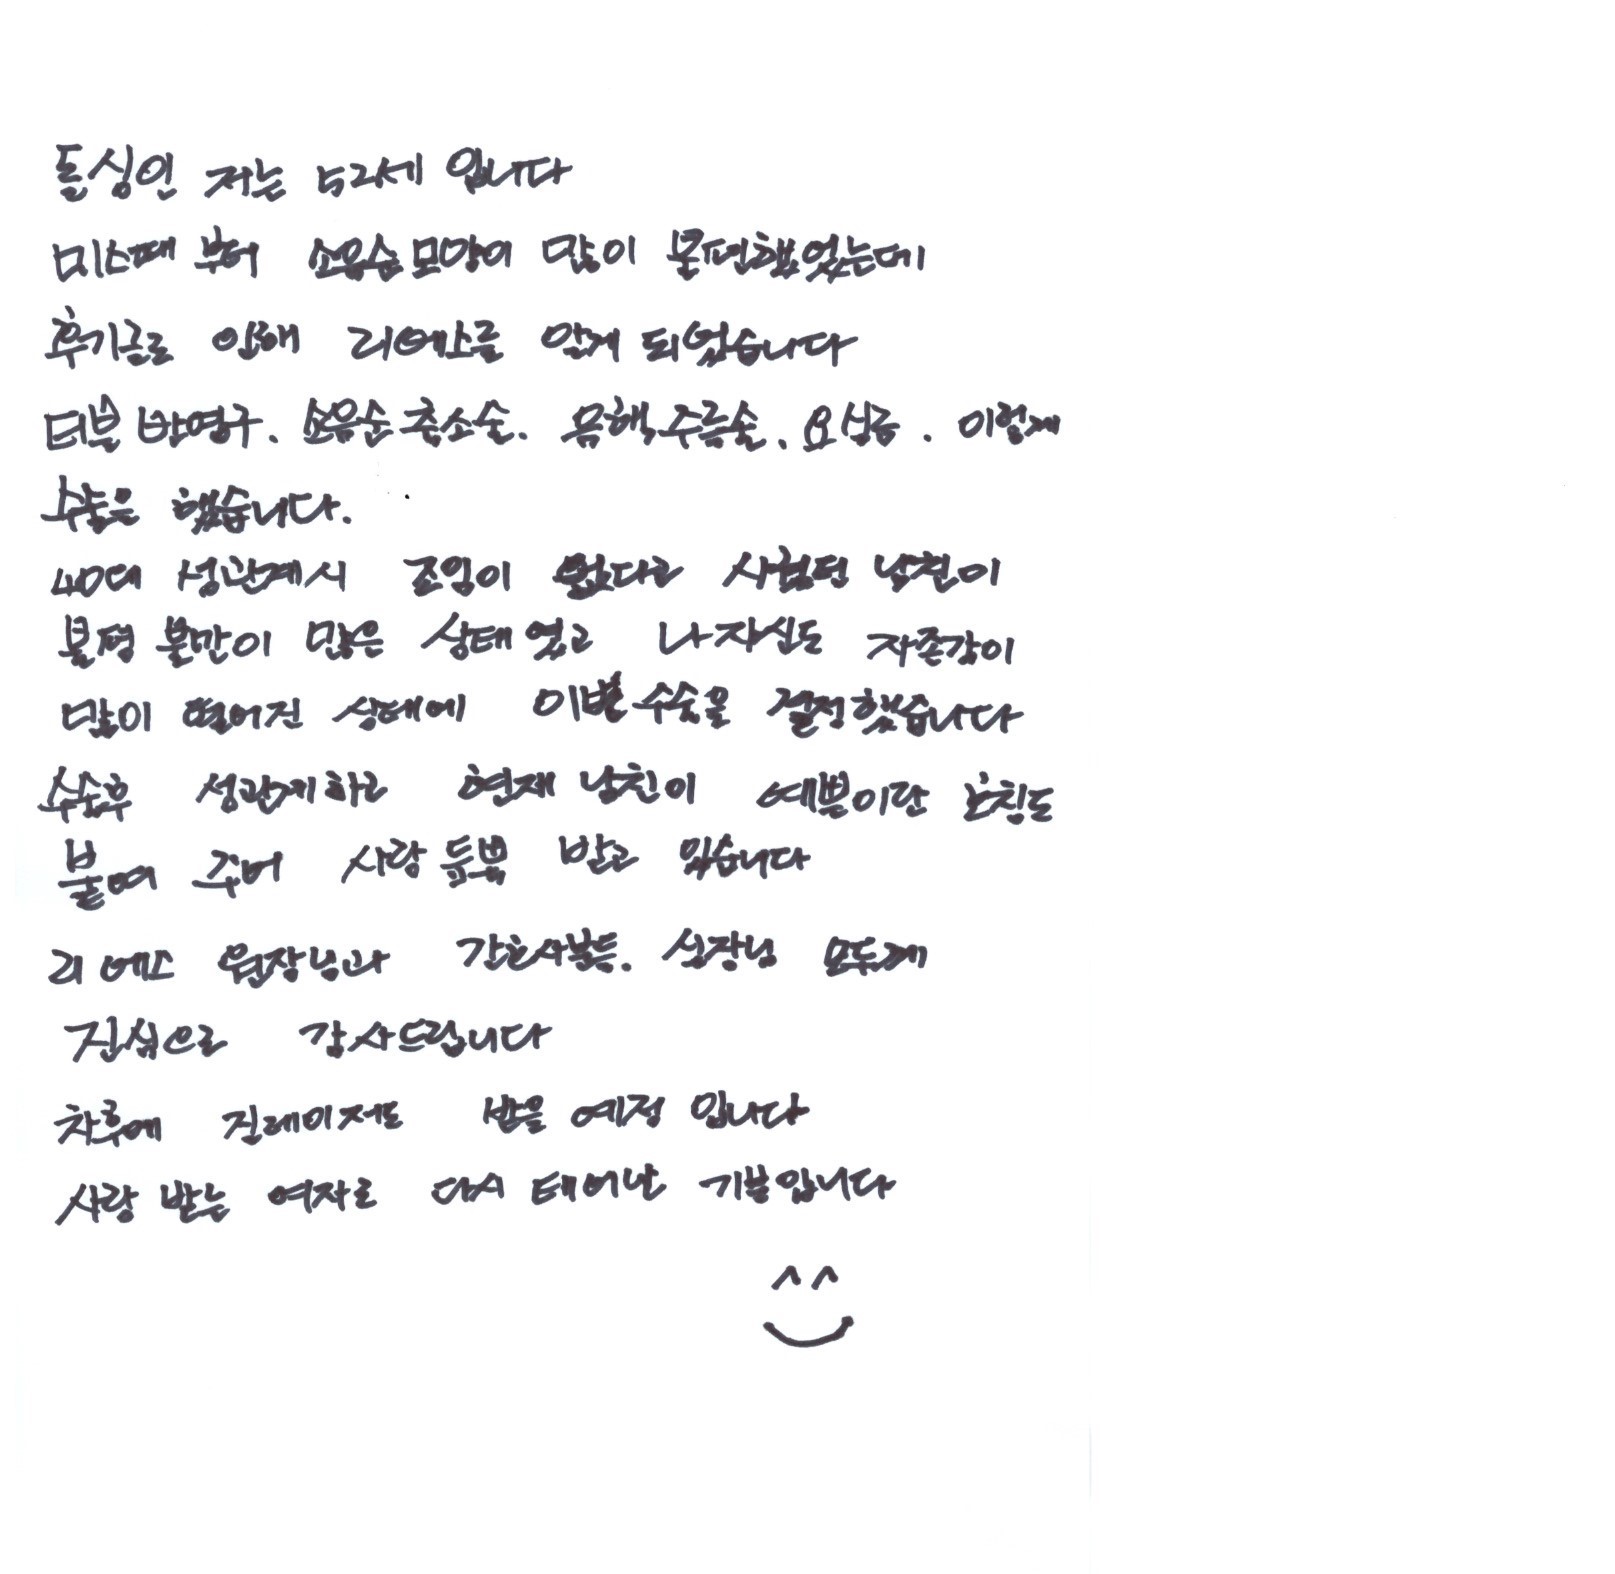 돌싱인 저는 52세 입니다
미스때 부터 소음순모양이 많이 불편했었는데
후기글로 인해 리에스를 알게 되었습니다
더블 반영구. 소음순 축소술. 음핵주름술. 요실금. 이렇게
수술은 했습니다.
40대 성관계시 조임이 없다고 사귐던 남친이
불평 불만이 많은 상태였고 나자신도 자존감이
많이 떨어진 상태에 이번수술을 결정했습니다
수술후 성관계하고 현재 남친이 예쁜이란 호칭도
붙여 주어 사랑 듬뿍 받고 있습니다
리에스 원장님과 간호사분들. 실장님 모두게
진심으로 감사드립니다
차후에 질레이저도 받을 예정 입니다
사랑 받는 여자로 다시 태어난 기분입니다
^^